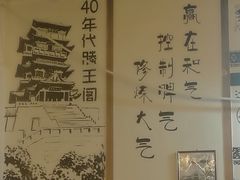 40年代滕王阁
赢在和气
控制脾气
修炼大气